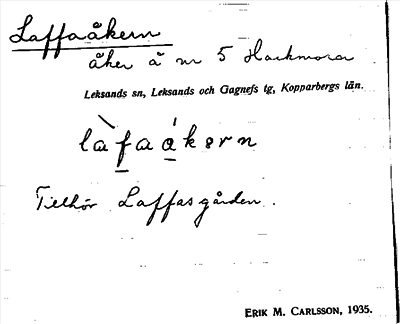 Laffaåkern
åker å nr 5 Hackmora
Leksands sn, Leksands och Gagnefs tg, Kopparbergs län.
làfaákərn
Tillhör Laffasgården.
ERIK M. CARLSSON, 1935.